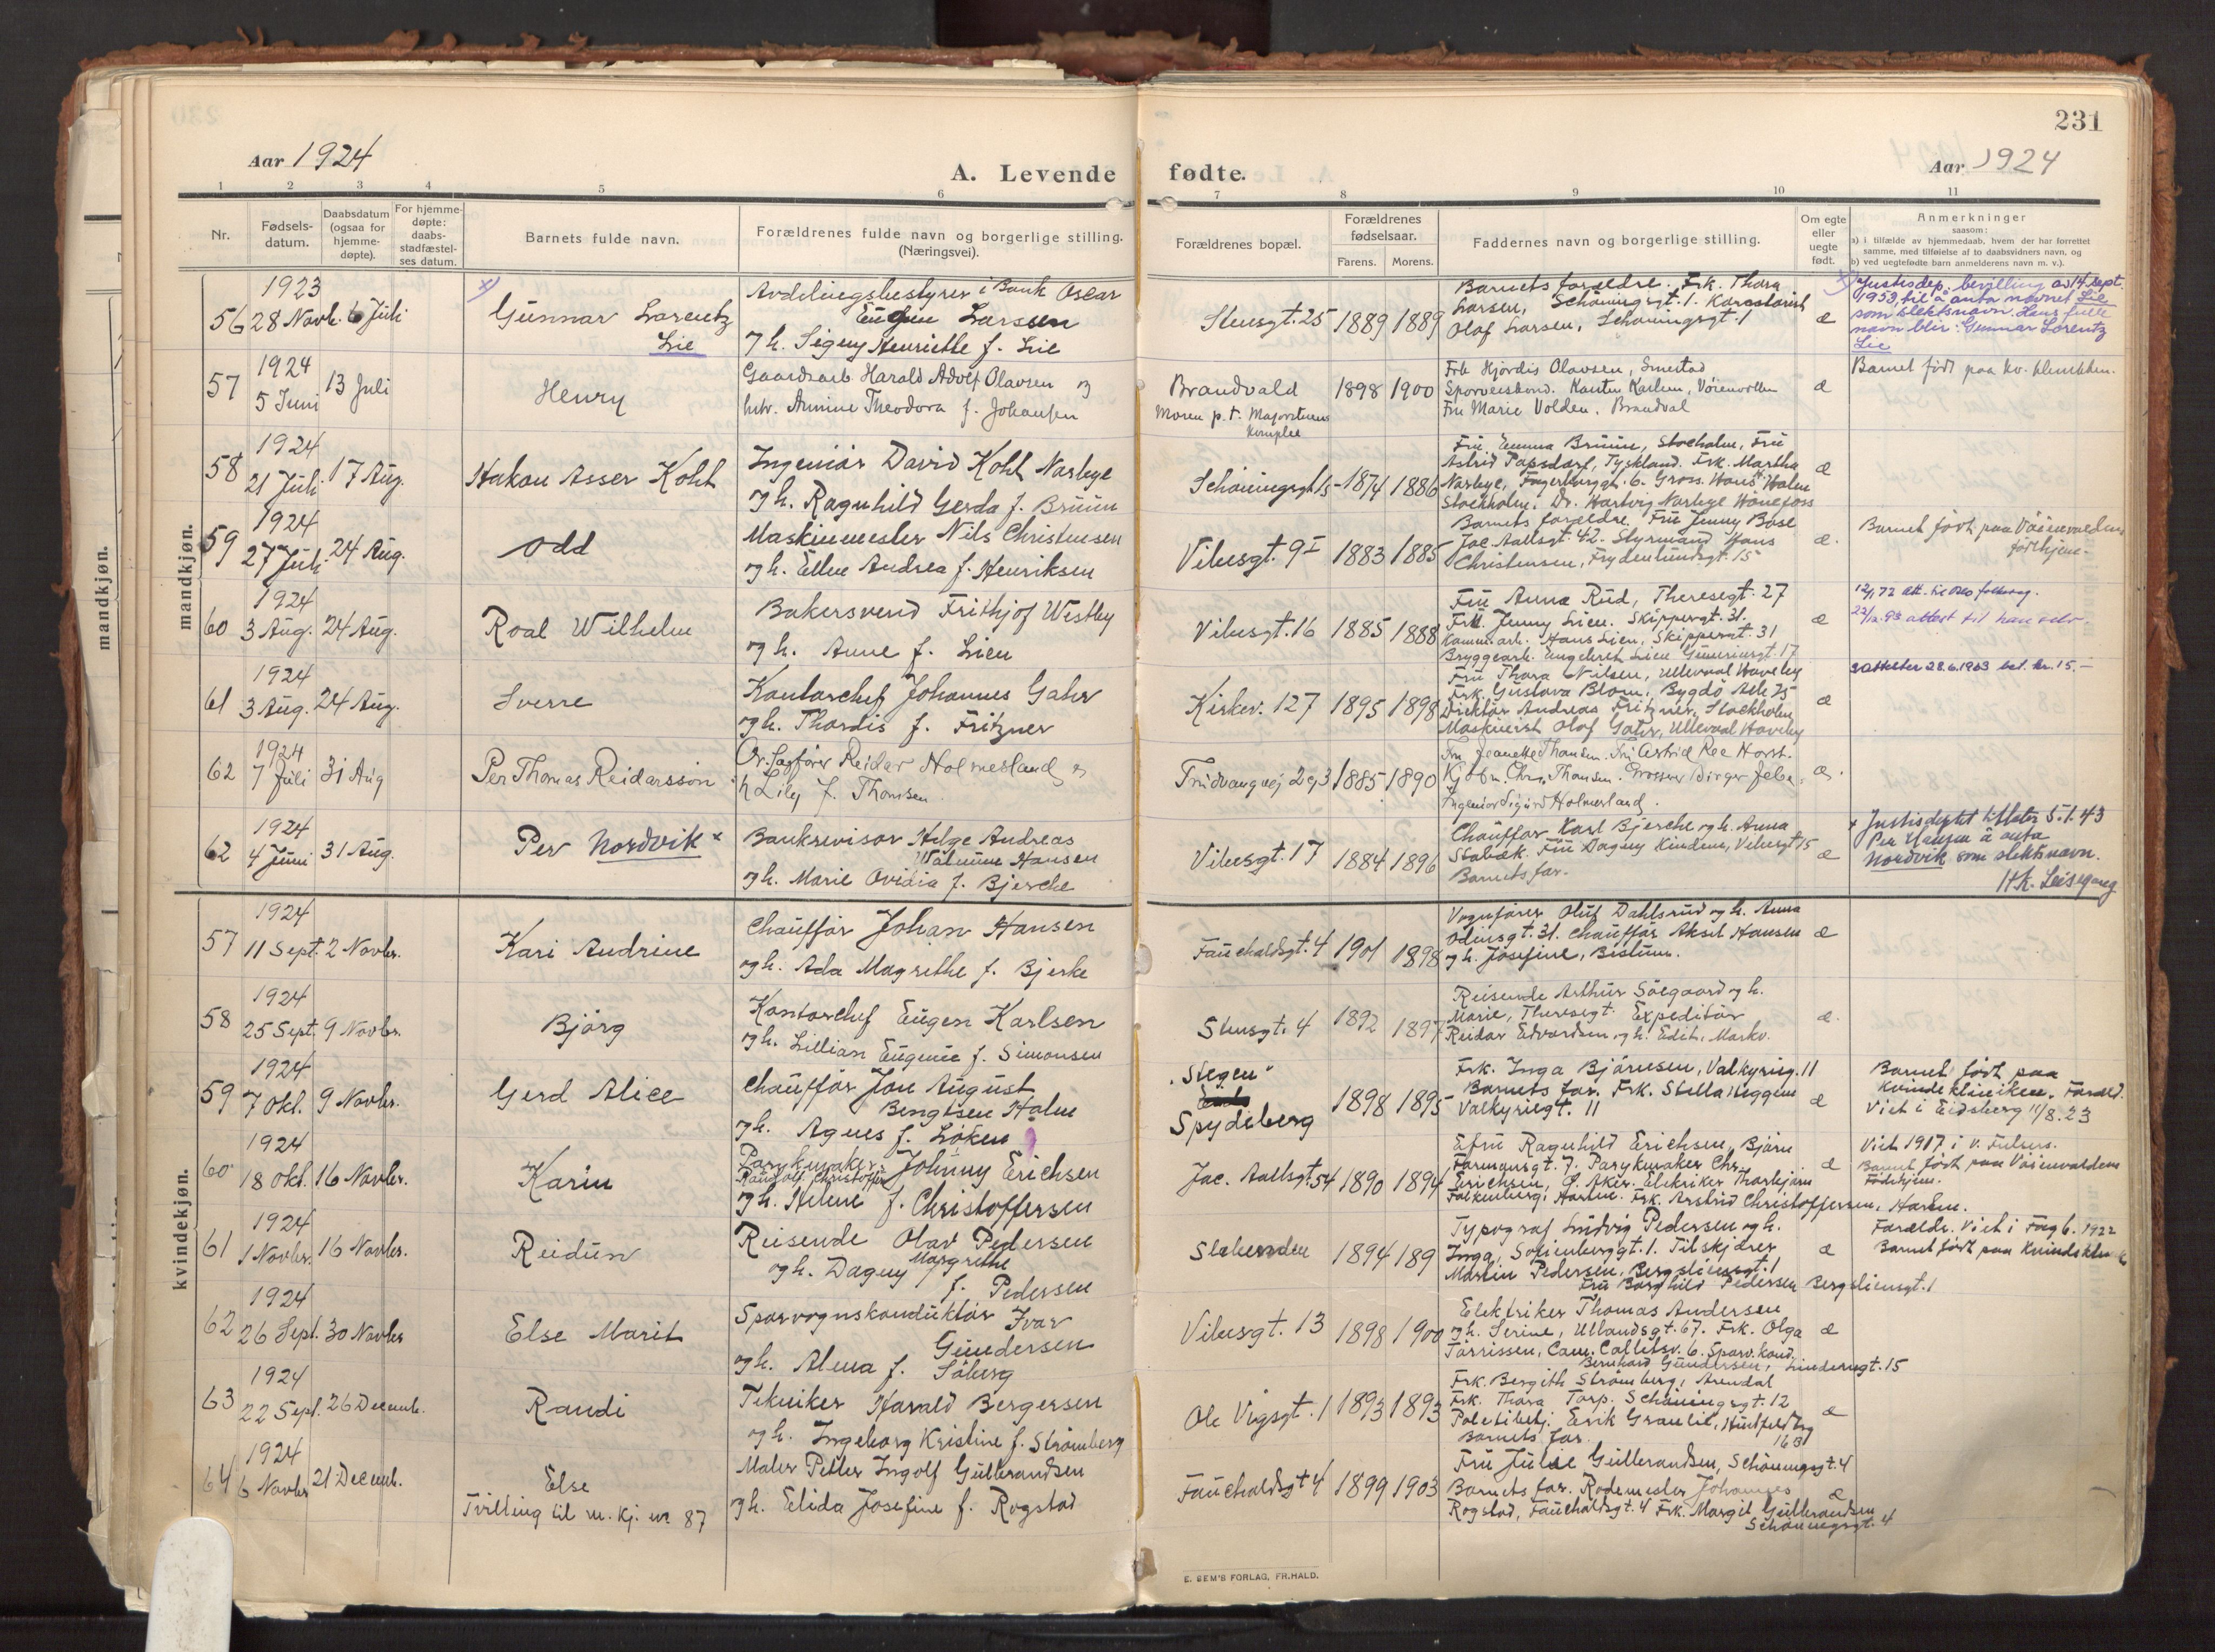 231
Aar 1924
A. Levende fødte.
Aar 1924
1 2 3 4 5 6 7 8 9 10 11
Nr.
Fødsels-
datum.
Daabsdatum
(ogsaa for
hjemme-
døpte).
For hjemme-
døpte:
daabs-
stadfæstel-
ses datum.
Barnets fulde navn.
Forældrenes fulde navn og borgerlige stilling.
(Næringsvei).
Forældrenes bopæl.
Forældrenes
fødselsaar.
Farens. Morens.
Faddernes navn og borgerlige stilling.
Om egte
eller
uegte
født.
Anmerkninger
saasom:
a) i tilfælde av hjemmedaab, hvem der har forrettet
samme, med tilføielse af to daabsvidners navn, og
b) ved uegtefødte barn anmelderens navn m. v.).
mandkjøn.
mandkjøn.
56
1923
28 Novb. 6 Juli
Gunnar Lorentz
Lie
Avdelingsbestyrer i Bank Oscar
Eugen Larssen
og h. Signy Henriette f. Lie
Stensgt. 25 1889 1889
Barnets forældre. Frk. Thora
Larsen, Schøningsgt. 1. Kontorist
Olaf Larsen, Schøningsgt. 1
æ
Justisdep. bevilling av 14 sept.
1953, til å anta navnet Lie
som slektsnavn. Hans fulle
navn blir: Gunnar Lorentz
Lie
57
1924
5 Juni 13 Juli
Henry
Gaardsarb Harald Adolf Olavsen og
hstr. Annine Theodora f. Johansen
Brandvald
Moren p. t. Majorstuens
1898 1900
Frk Hjørdis Olavsen, Smestad
Fru Marie Volden, Brandval
æ
Barnet født paa kv. klinikken.
58
1924
21 Juli 17 Aug.
Hakon Asser Koht
Ingeniør David Koht Norbye
og h. Ragnhild Gerda f. Bruun
Schøningsgt 15 1874 1886
Fru Emma Bruun, Stocholm, Fru
Astrid Papsdorf, Tyskland. Frk. Martha
Norbye, Fagerborggt. 6. Gross. Hans Holm
Stockholm. Dr. Hartvig Norbye Hønefoss
æ
59
1924
27 Juli 24 Aug.
Odd
Maskinmester Nils Christensen
og h. Ellen Andrea f. Henriksen
Vibesgt. 9 I 1883 1885
Barnets forældre. Fru Jenny Bose
Jac. Aallsgt. 42. Styrmand Hans
Christensen, Frydenlundsgt. 15
æ.
Barnet født paa Vöienvoldens
fødehjem.
60
1924
3 Aug. 24 Aug.
Roal Wilhelm
Bakersvend Frithjof Westby
og h. Anne f. Lien
Vibesgt. 16 1885 1888
Fru Anna Rud, Theresegt. 27
Frk. Jenny Lien. Skippergt. 31.
Kommarb. Hans Lien, Skippergt. 31
Bryggearb. Engebret Lien
æ
12/1 72 att. til Oslo folkereg.
22/12.93 attest til han selv.
61
1924
3 Aug. 24 Aug.
Sverre
Kontorchef Johannes Gahr
og h. Thordis f. Fritzner
Kirkev. 127 1895 1898
Fru Thora Nilsen, Ulleval Haveby
Frk. Gustava Blom, Bygdö Alle 75
Direktør Andreas Fritzner, Stockholm
Maskinist Olaf Gahr, Ulleval Haveby
æ
2 attester 28.6.1963 bet. kr. 15.-
62
1924
7 Juli 31 Aug
Per Thomas Reidarsson
Or. Sagfører Reidar Holmesland og
h Lily f. Thomsen.
Trudvangvej 29 1885 1890
Ingeniør Sigurd Holmesland.
æ.
62
1924
4 Juni 31 Aug.
Per Nordvik x
Bankrevisor Helge Andreas
Hansen
og h. Marie Ovidia f. Bjerche
Vibesgt. 17 1884 1896
Chauffør Karl Bjerche og h. Anna
Stabæk. Fru Dagny Kindem, Vibesgt 15
Barnets far.
æ
x Justisdeptet tillater 5.1.43
Per Hansen å anta
Nordvik som slektsnavn.
kvindekjøn.
57
1924
11 Sept. 2 Novbr.
Kari Andrine
Chauffør Johan Hansen
og h. Ada Magrethe f. Bjerke
Fauchaldsgt. 4 1901 1898
Vognfører Oluf Dahlsrud og h. Anna
Odinsgt. 31. Chauffør Aksel Hansen
og h. Josefine, Bestum.
æ
58
1924
25 Sept. 9 Novbr.
Bjørg
Kontorchef Eugen Karlsen
og h. Lillian Eugenie f. Simonsen
Stensgt. 4 1892 1897
Reisende Arthur Söegaard og h.
Marie, Theresegt. Expeditør
Reidar Edvardsen og h. Edit, Markv.
æ.
59
1924
7 Okt. 9 Novbr.
Gerd Alice
Chauffør Jon August
Bengtsen Holm
og h. Agnes f. Løken
"Stegen"
Spydeberg
1898 1895
Frk. Inga Bjørnesen, Valkyrieg. 11
Barnets far. Frk. Stella Heggem
Valkyriegt. 11
æ
Barnet født paa
Kvindeklinikken. Foræld.
Viet i Eidsberg 11/8.23
60
1924
18 Okt. 16 Novbr.
Karin
Parykmaker Johnny Erichsen
Randolf Christoffer
og h. Helene f. Christoffersen
Jac. Aallsgt. 54 1890 1894
Efru Ragnhild Erichsen, Bjørn
Farmansgt. 7. Parykmaker Chr.
Erichsen, Ø. Aker. Elektriker Thorbjørn
Falkenberg, Horten. Frk. Astrid Christoffersen, Horten.
æ
Viet 1917 i V. Fulpus.
Barnet født paa Vöienvoldens
Fødehjem.
61
1924
1 Novbr. 16 Novbr.
Reidun
Reisende Olav Pedersen
og h. Dagny Margrethe
f. Pedersen
Slependen 1894 189
Typograf Ludvig Pedersen og h.
Inga, Sofienberggt. 1. Tilskjærer
Martin Pedersen, Bergsliensgt. 1
Fru Borghild Pedersen Bergsliensgt. 1
æ
Foreldr. viet i Fagb. 1922
Barnet født paa Kvindeklin
62
1924
26 Sept. 30 Novbr
Else Marit
Sporvognskonduktør Ivar
Gundersen
og h. Alma f. Söberg
Vibesgt. 13 1898 1900
Elektriker Thomas Andersen
og h. Serine, Ullandsgt. 67. Frk. Olga
Tørrissen, Cam. Colletsv. 6. Sporv. kond.
Bernhard Gundersen, Linderngt. 15
æ
63
1924
22 Sept. 26 Decemb.
Randi
Tekniker Harald Bergersen
og h. Ingeborg Kristine f. Strømberg
Ole Vigsgt. 1 1893 1893
Frk. Bergith Strømberg, Arendal
Frk. Thora Torp. Schøningsgt. 12
Politibetj. Erik Granlie, Huitfeldtsg
16 3
Barnets far
æ
64
1924
6 Novbr 21 Decemb.
Else
Tvilling til m. kj. nr 87
Maler Petter Ingolf Gulbrandsen
og h. Elida Josefine f. Rogstad
Fauchaldsgt 4 1899 1903
Fru Julie Gulbrandsen, Schøningsgt. 4
Barnets far. Rodemester Johannes
Rogstad, Fauchaldsgt. 4 Frk. Margit Gulbrandsen
Schøningsgt. 4
æ
E. SEM'S FORLAG, FR.HALD.